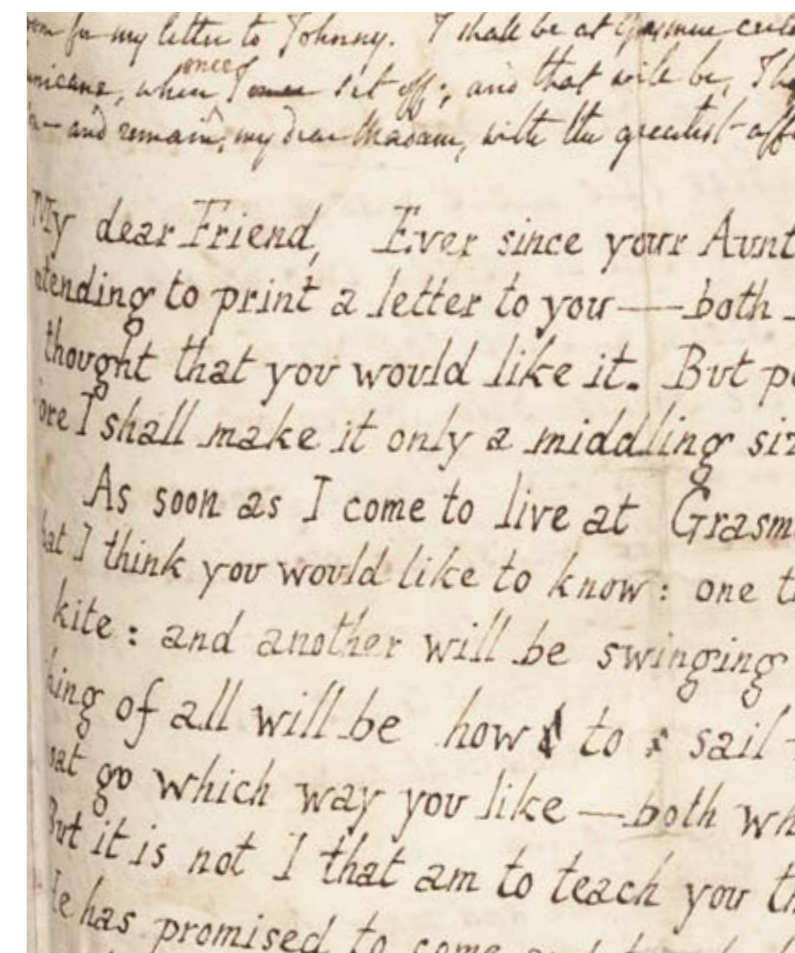 for my letter to Johnny. I shall be at Grasmere
when I once set off; and that will be,
and remain, my dear Madam, with the greatest
My dear Friend, Ever since your Aunt
ntending to print a letter to you — both
thought that you would like it. But
ore I shall make it only a middling siz
As soon as I come to live at Grasm
hat I think you would like to know: one t
kite: and another will be swinging
hing of all will be how to sail
hat go which way you like — both wh
But it is not I that am to teach you th
He has promised to come and